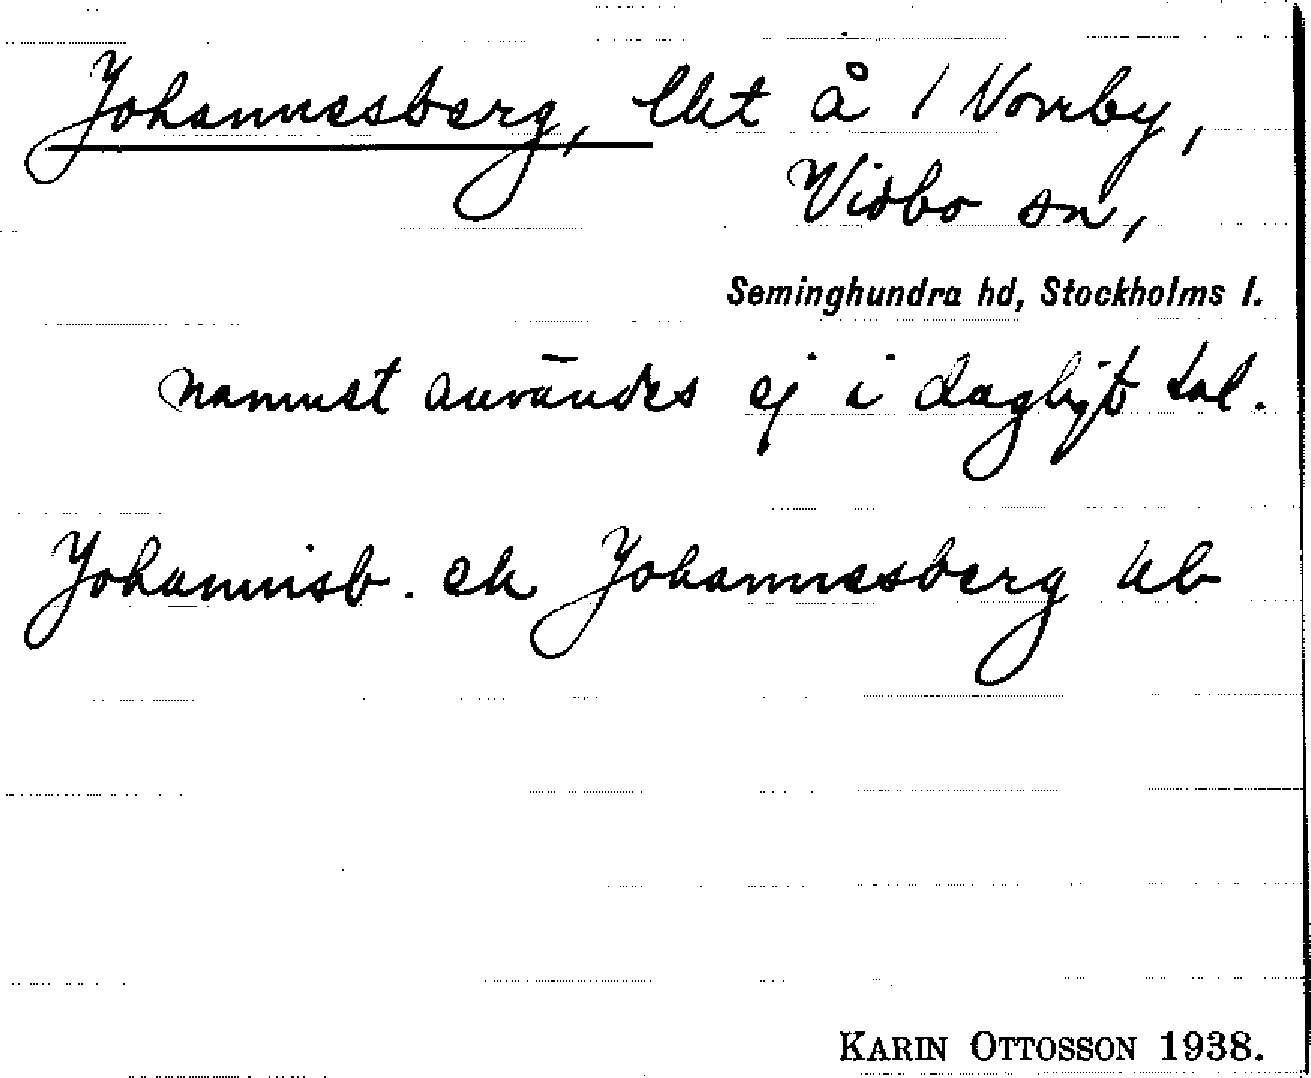 Johannesberg, lht å 1 Norrby,
Vidbo sn,
Seminghundra hd, Stockholms l.
namnet användes ej i dagligt tal.
Johannisb. ek Johannesberg ub
KARIN OTTOSSON 1938.